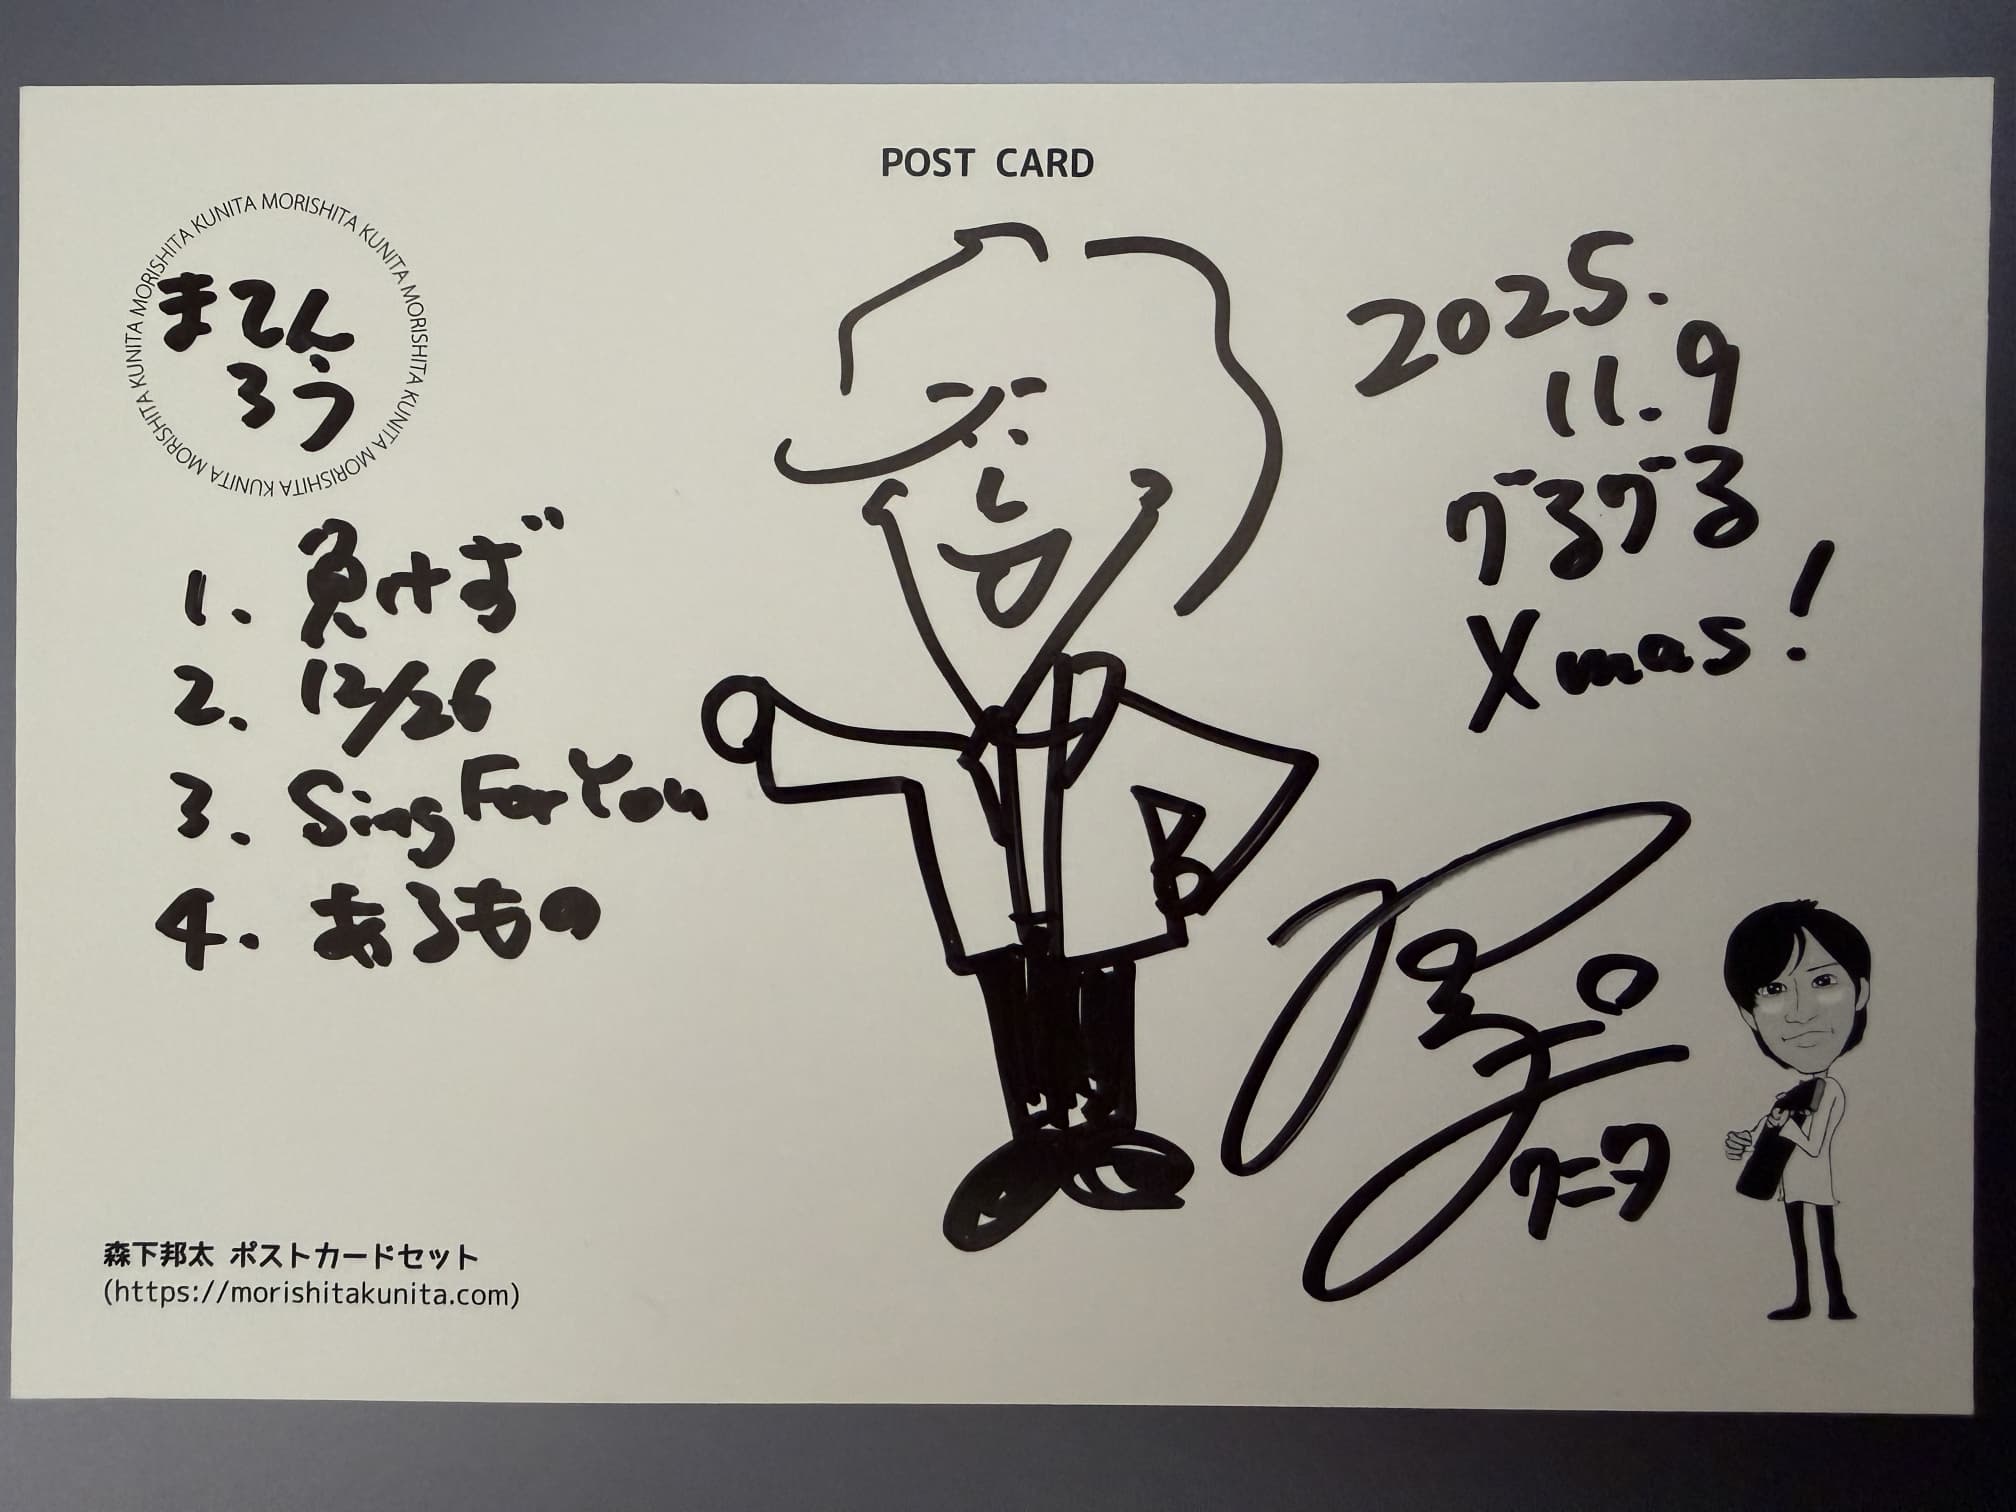 POST CARD
MORISHITA KUNITA MORISHITA KUNITA MORISHITA KUNITA MORISHITA KUNITA MORISHITA KUNITA
まてん
ろう
1. 負けず
2. 12/26
3. Sing For You
4. あるもの
2025.
11.9
グるグる
Xmas!
クニタ
森下邦太 ポストカードセット
(https://morishitakunita.com)